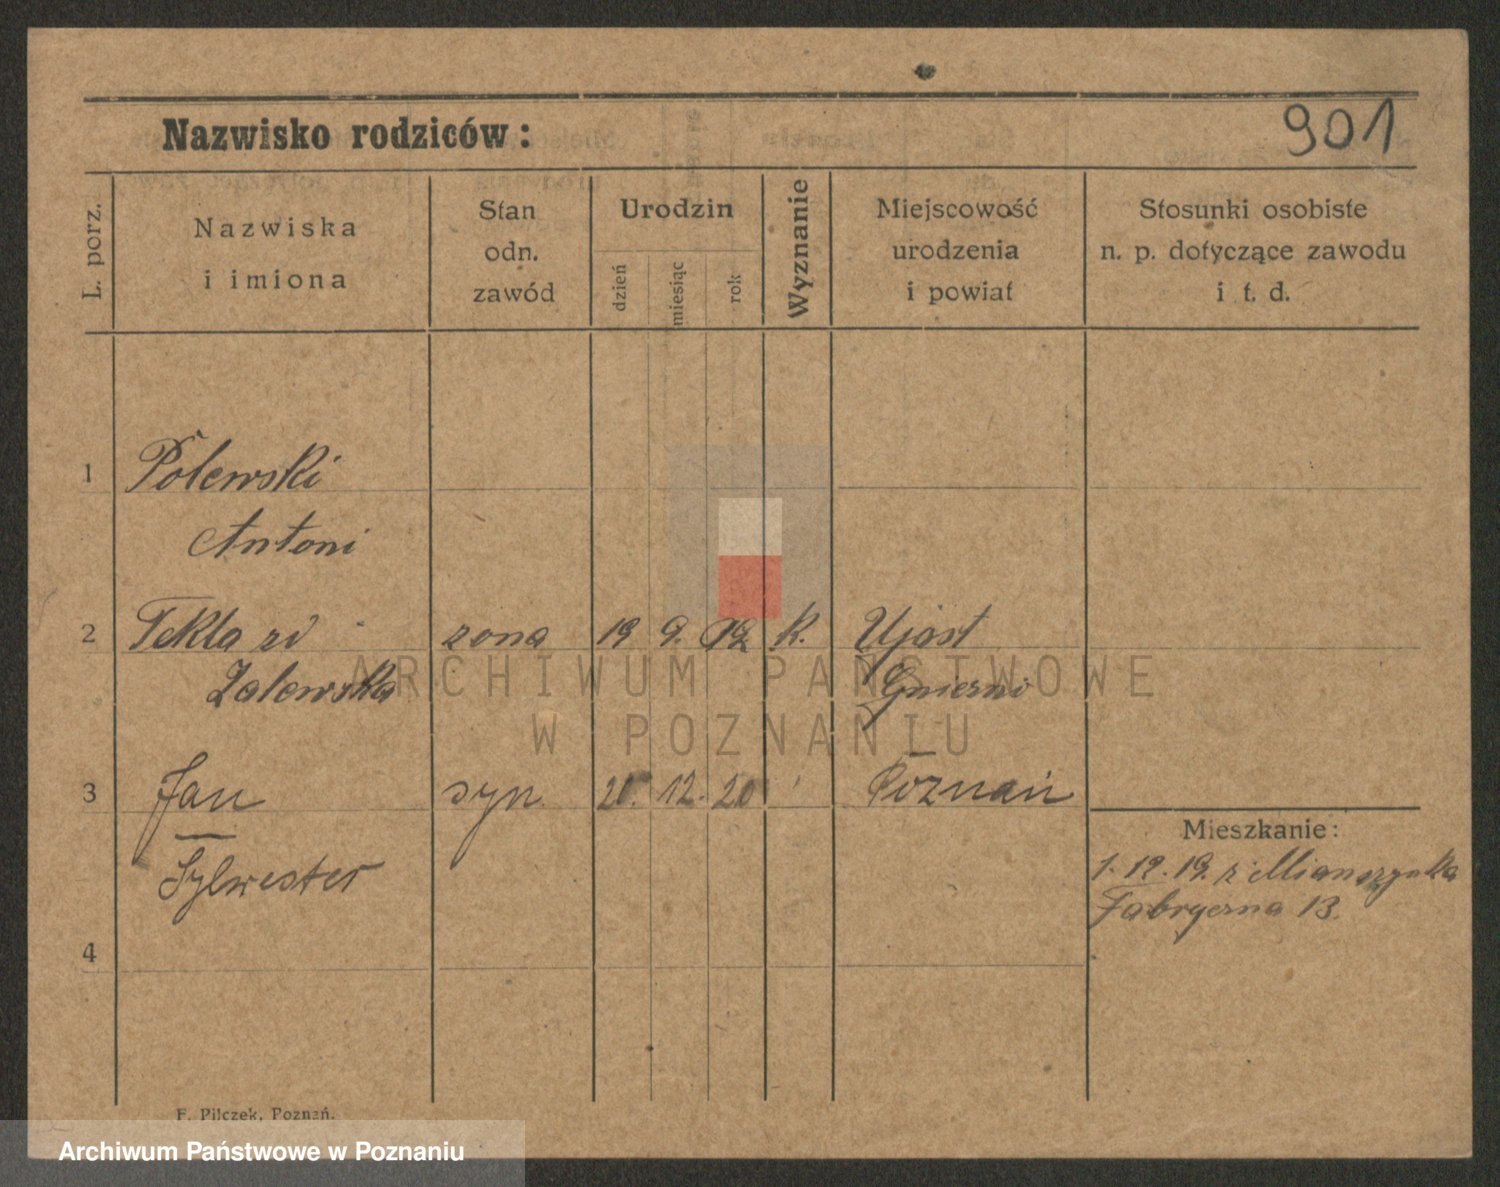 Nazwisko rodziców:
901
L. porz.
Nazwiska
i imiona
Stan
odn.
zawód
Urodzin
dzień
miesiąc
rok
Wyznanie
Miejscowość
urodzenia
i powiat
Stosunki osobiste
n. p. dotyczące zawodu
i t. d.
1 Polewski
Antoni
2 Tekla zd żona 19 9. k. Ujast
Zalewska
ARCHIWUM PAŃSTWOWE
W POZNANIU
3 Jan syn 20. 12. 20 Poznań
Sylwester
Mieszkanie:
1. 12. 19. z
Fabryczna 13.
4
F. Pilczek, Poznań.
Archiwum Państwowe w Poznaniu